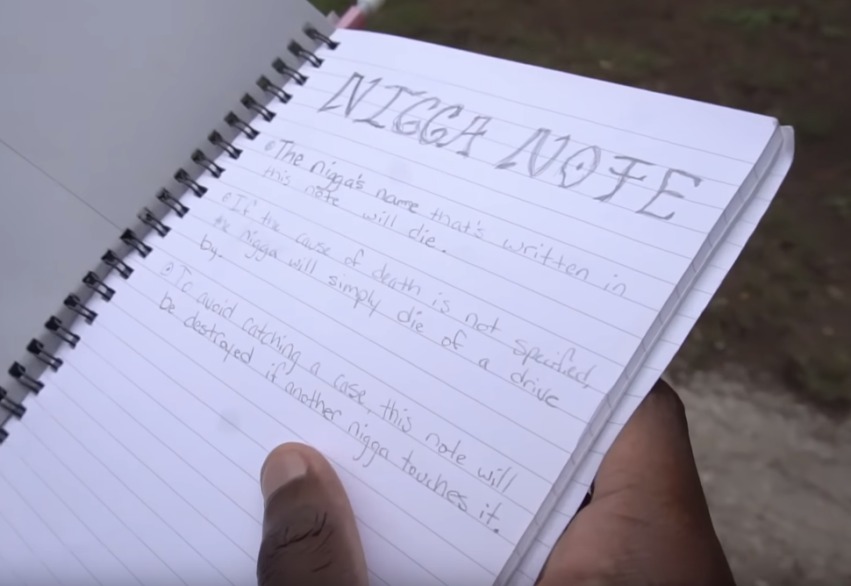 NIGGA NOTE
• The nigga's name that's written in
this note will die.
• If the cause of death is not specified,
the nigga will simply die of a drive
by.
• To avoid catching a case, this note will
be destroyed if another nigga touches it.